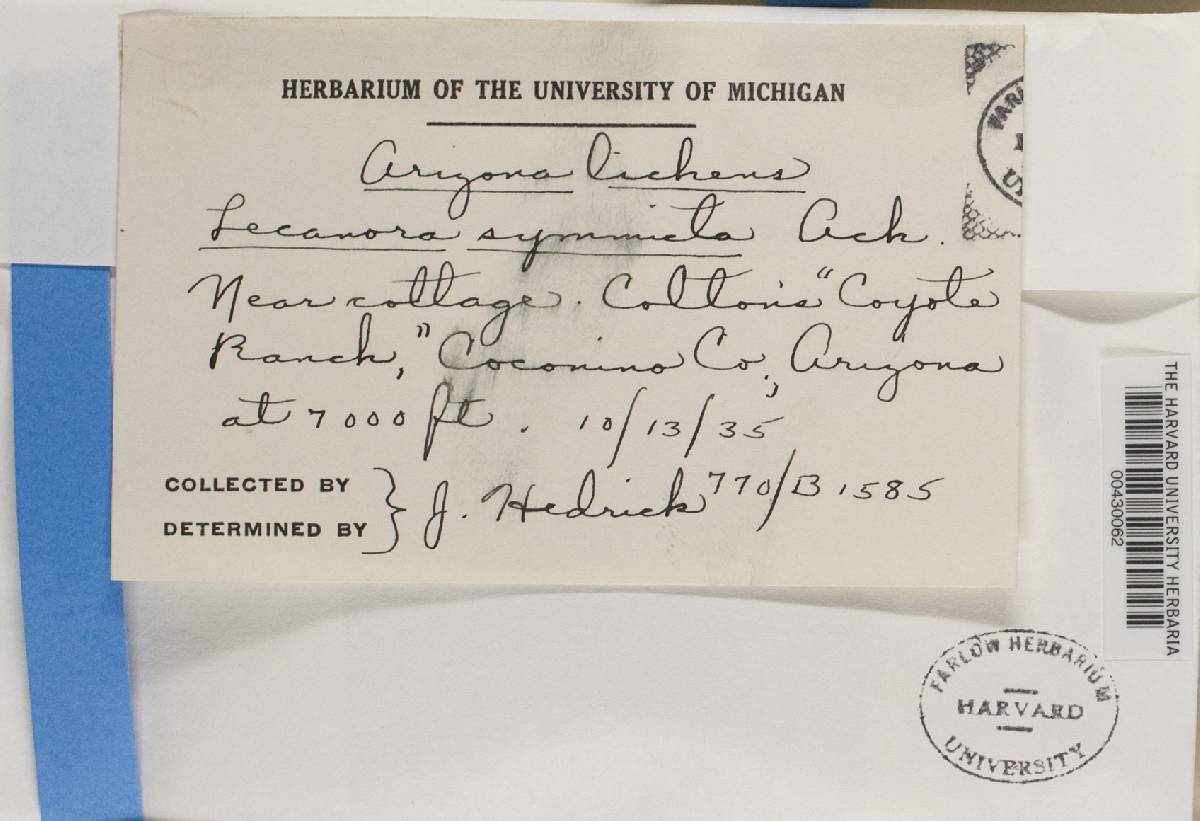 HERBARIUM OF THE UNIVERSITY OF MICHIGAN
Arizona lichens
Lecanora symmicta Ach.
Near cottage. Colton's "Coyote
Ranch," Coconino Co., Arizona
at 7000 ft. 10/13/35
COLLECTED BY
DETERMINED BY } J. Hedrick 770/B 1585
THE HARVARD UNIVERSITY HERBARIA
00430062
FARLOW HERBARIUM
HARVARD
UNIVERSITY